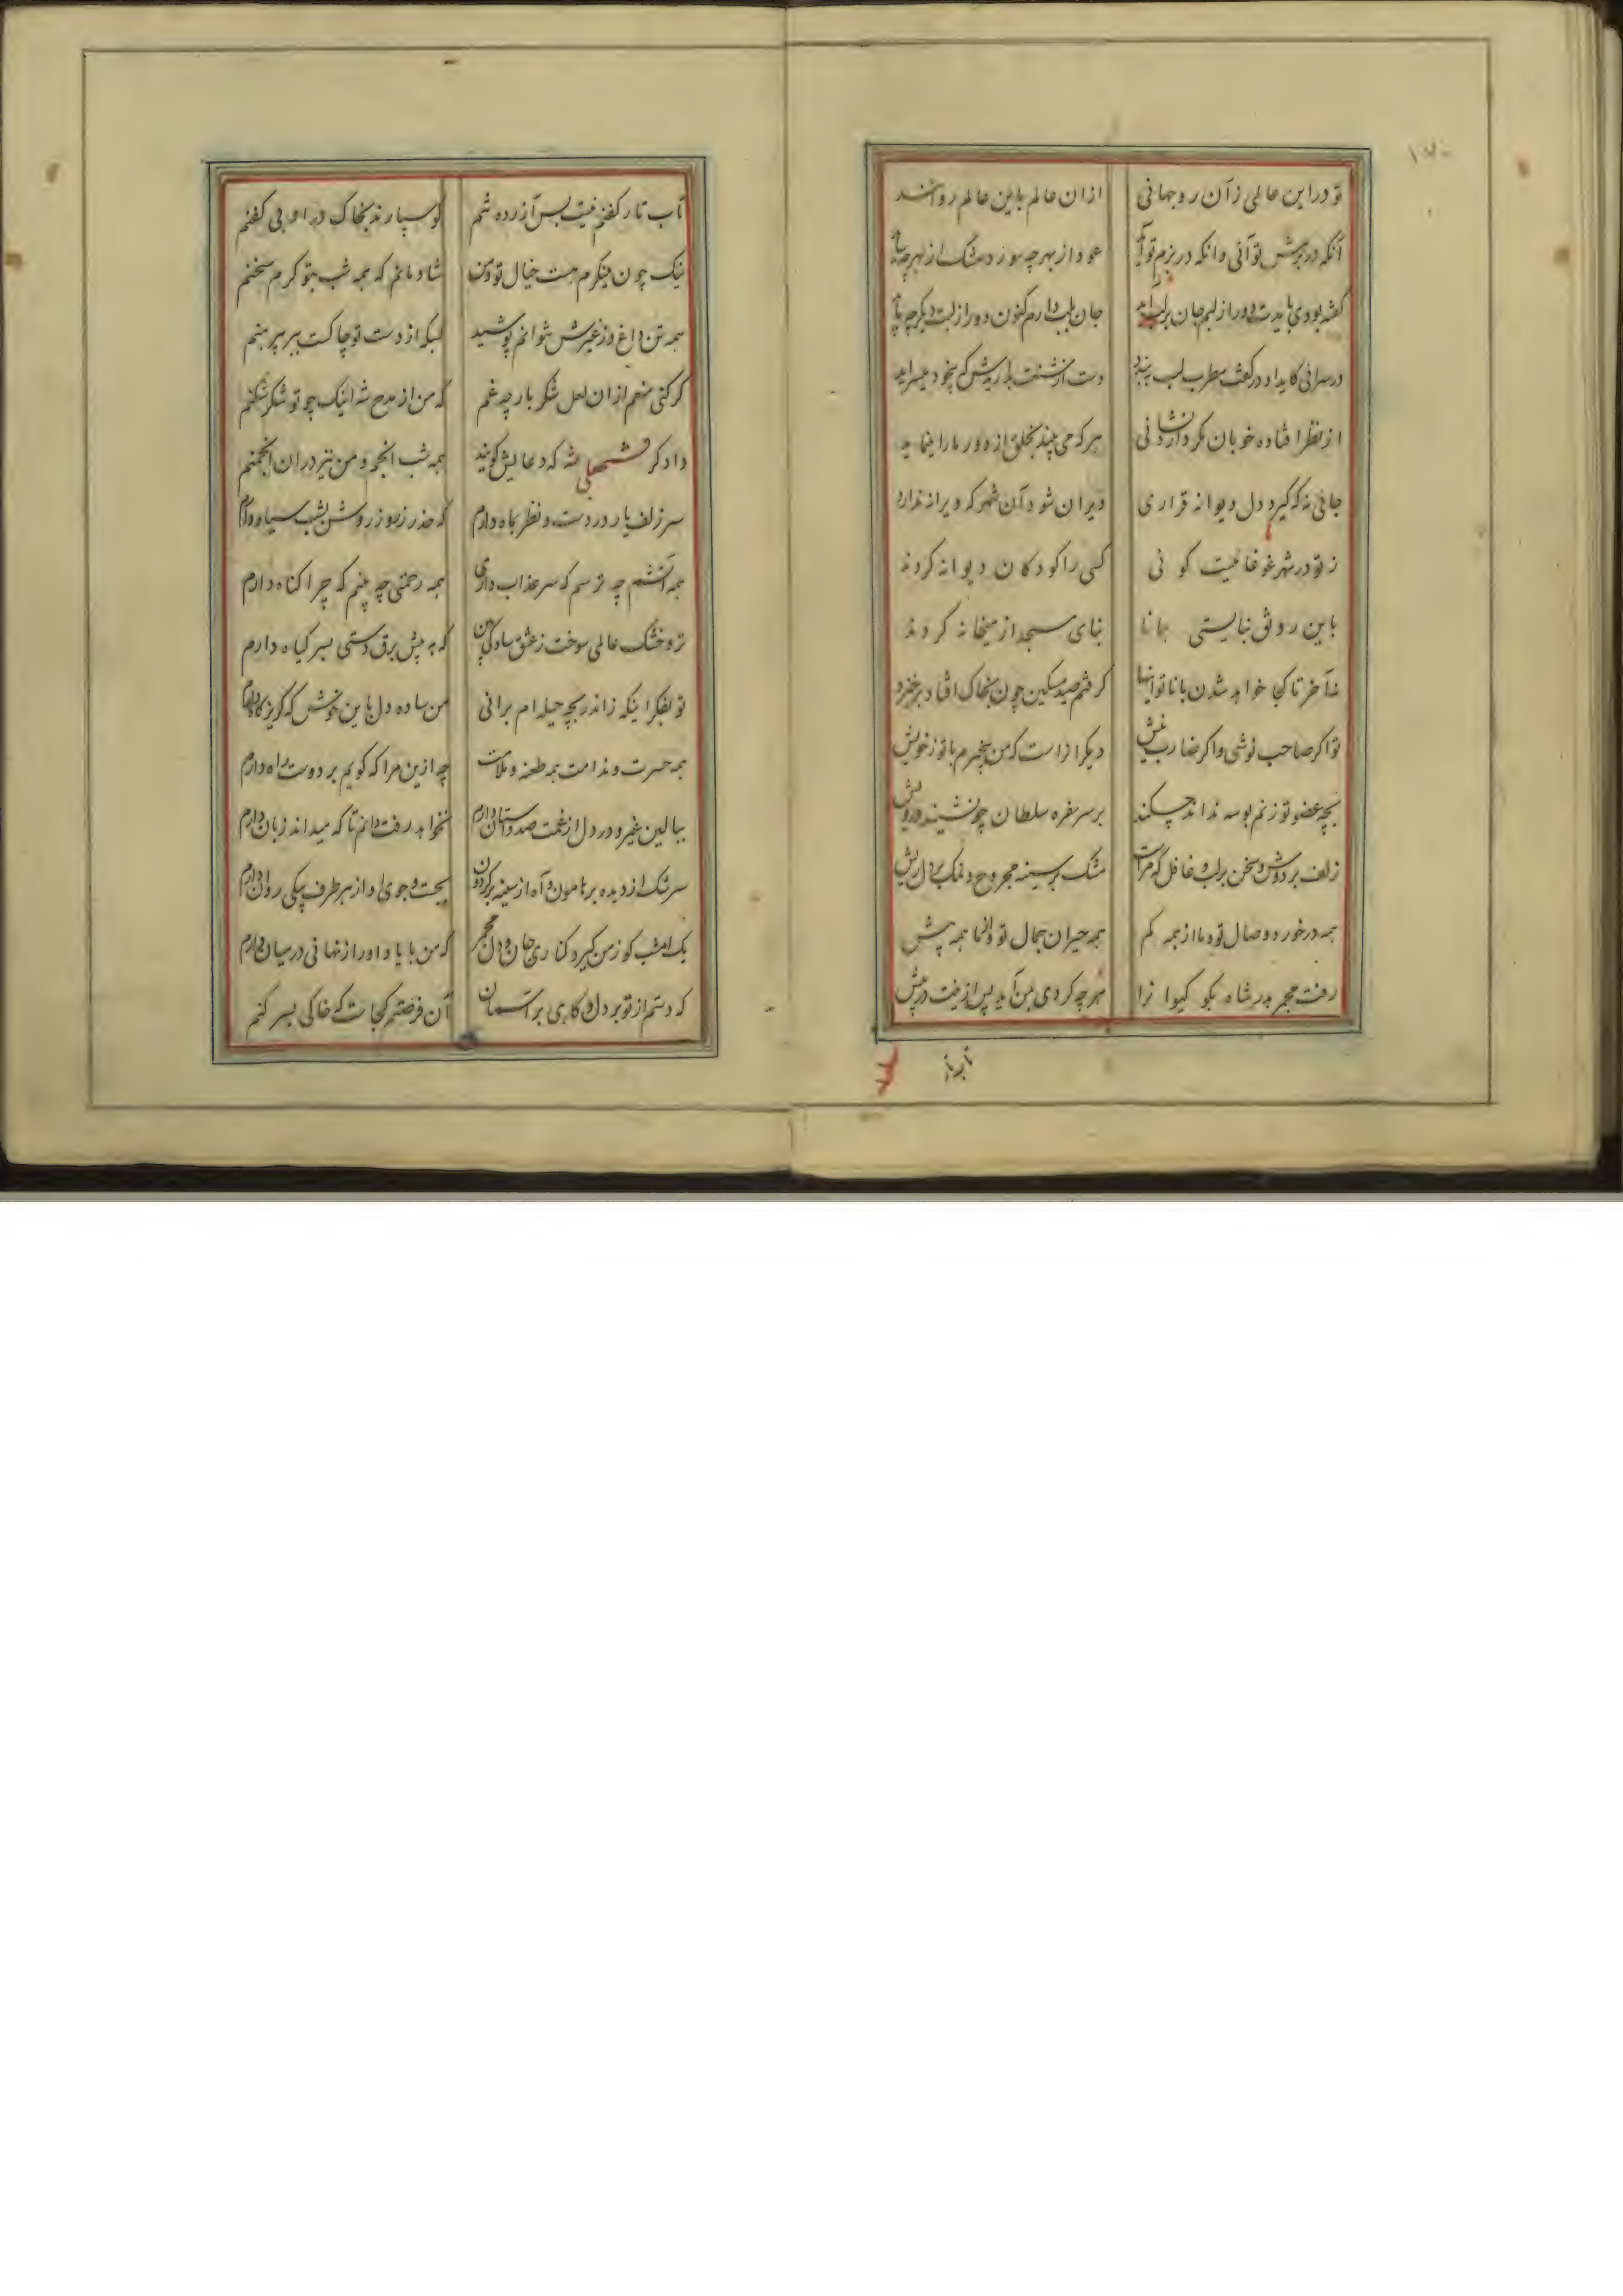 تو در این عالمی ز آن رو جهانی از ان عالم باین عالم روانند
آنکه در پیش تو آئی وانکه در بزم تو آید عود از بهر چه سوزد مشک از بهر چه ساید
گفته بودی بایدت دور از لبم جان بر لب آید جان بلب دارم کنون دور از لبت دیگر چه باید
در سرائی کاید او در کف مطرب لب به بندد دست از مشت بدار پیش که بیخود میسراید
از نظر افتاده خوبان مگر دارد نشانی هر که می بیند بخلق از دور ما را مینماید
جائی نه که گیرد دل دیوانه قراری ویران شود آن شهر که ویرانه ندارد
ز تو در شهر غوغا نیست گوئی کسی را کودکان دیوانه کردند
باین رونق نبایستی همانا بنای مسجد از میخانه کردند
تا آخر تا کجا خواهد شدن با ناتوانیها گرفتم صید مسکین چون بخاک افتاد برخیزد
تو اگر صاحب نوشی و اگر ضارب نیش دیگرانراست که من بیخبرم با تو ز خویش
بچه عضو تو زنم بوسه نداند چکند بر سر سفره سلطان چو نشیند درویش
زلف بر دوش و سخن بر لب و غافل که مراست مشک بر سینه مجروح و نمک بر دل ریش
همه در خورد وصال تو و ما از همه کم همه حیران جمال تو و ما از همه بیش
رفت مجمر بدر شاه بگو گیوا نرا هر چه کردی بمن آید پس ازینت در پیش
تاب تار کفنم نیست بس آزرده تنم گو سپارند بخاک در او بی کفنم
نیک چون مینگرم هست خیال تو و من شادمانم که همه شب بتو گرم سخنم
همه تن داغ و ز غیرش نتوانم پوشید بسکه از دست تو چاکست ببر پیرهنم
گر کنی منعم از ان لعل شکر بار چه غم که من از مدح شه اینک چو تو شکر شکنم
دادگر فتحعلی شه که دعایش گویند همه شب انجم و من نیز در ان انجمنم
سر زلف یار در دست و نظر بماه دارم که حذر ز روز روشن بشب سیاه دارم
همه آتشم چه ترسم که سر عذاب داری همه رحمتی چه بینم که چرا گناه دارم
تر و خشک عالمی سوخت ز عشق و سادگی بین که به پیش برق دستی بسر گیاه دارم
تو بفکر اینکه زاندر بچه حیله ام برانی من ساده دل باین خوش که گریزگاه دارم
همه حسرت و ندامت همه طعنه و ملامت چه ازین مرا که گویم بر دوست راه دارم
ببالین غیر و در دل از غمت صد داستان دارم نخواهد رفت دانم تا که میداند زبان دارم
سرشک از دیده بر هامون و آه از سینه بر گردون بجست و جوی او از هر طرف پیکی روان دارم
یک امشب کو ز من گیرد کناری جان و دل مجمر که من با یاد او راز نهانی در میان دارم
که دستم از تو بر دل و گاهی بر آسمان آن فرصتم کجاست که خاکی بسر کنم